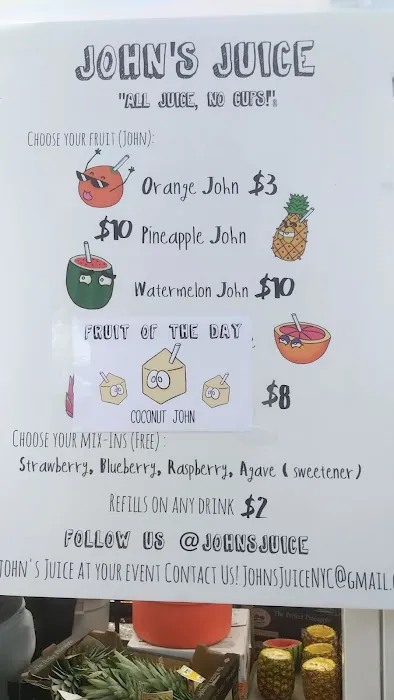 JOHN'S JUICE
"ALL JUICE, NO CUPS!"
CHOOSE YOUR FRUIT (JOHN):
Orange John $3
$10 Pineapple John
Watermelon John $10
FRUIT OF THE DAY
COCONUT JOHN
$8
CHOOSE YOUR MIX-INS (FREE):
Strawberry, Blueberry, Raspberry, Agave (sweetener)
REFILLS ON ANY DRINK $2
FOLLOW US @JOHNSJUICE
JOHN'S JUICE AT YOUR EVENT CONTACT US! JOHNSJUICENYC@GMAIL.